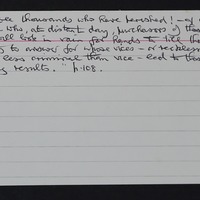 thousands who have perished! – of
who, at distant day, purchasers of these
will look in vain for hands to till the
to answer for whose vices – or reckless
less criminal than vice – led to these
results." p. 108.